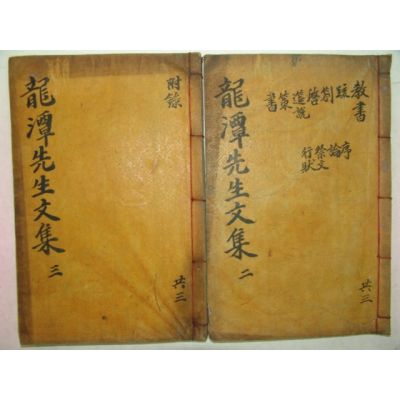 教書
疏
劄
啓
筵說
策
書
序
論
祭文
行狀
龍潭先生文集 二
共三
附錄
龍潭先生文集 三
共三